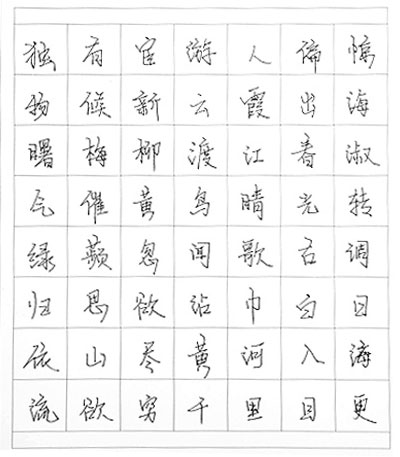 独有宦游人偏惊
物候新云霞出海
曙梅柳渡江春淑
气催黄鸟晴光转
绿蘋忽闻歌古调
归思欲沾巾白日
依山尽黄河入海
流欲穷千里目更